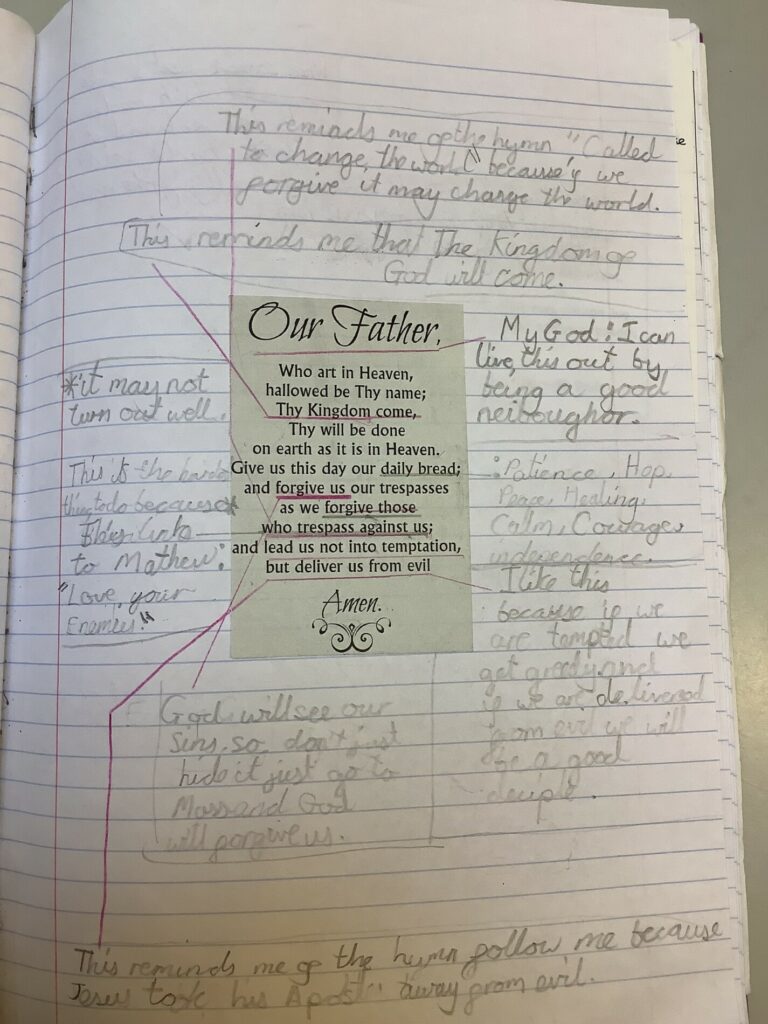 This reminds me of the hymn "Called
to change the world" because if we
forgive it may change the world.
This reminds me that The Kingdom of
God will come.
Our Father,
Who art in Heaven,
hallowed be Thy name;
Thy Kingdom come,
Thy will be done
on earth as it is in Heaven.
Give us this day our daily bread;
and forgive us our trespasses
as we forgive those
who trespass against us;
and lead us not into temptation,
but deliver us from evil
Amen.
My God: I can
live this out by
being a good
neiboughor.
*it may not
turn out well.
This is the
thing to do because*
links
to Mathew:
"Love your
Enemies!"
: Patience, Hop,
Peace, Healing,
Calm, Courage,
independence.
I like this
because if we
are tempted we
get greedy and
if we are delivered
from evil we will
be a good
deciple.
God will see our
Sins, so don't just
hide it just go to
Mass and God
will forgive us.
This reminds me of the hymn follow me because
Jesus took his Apost" away from evil.